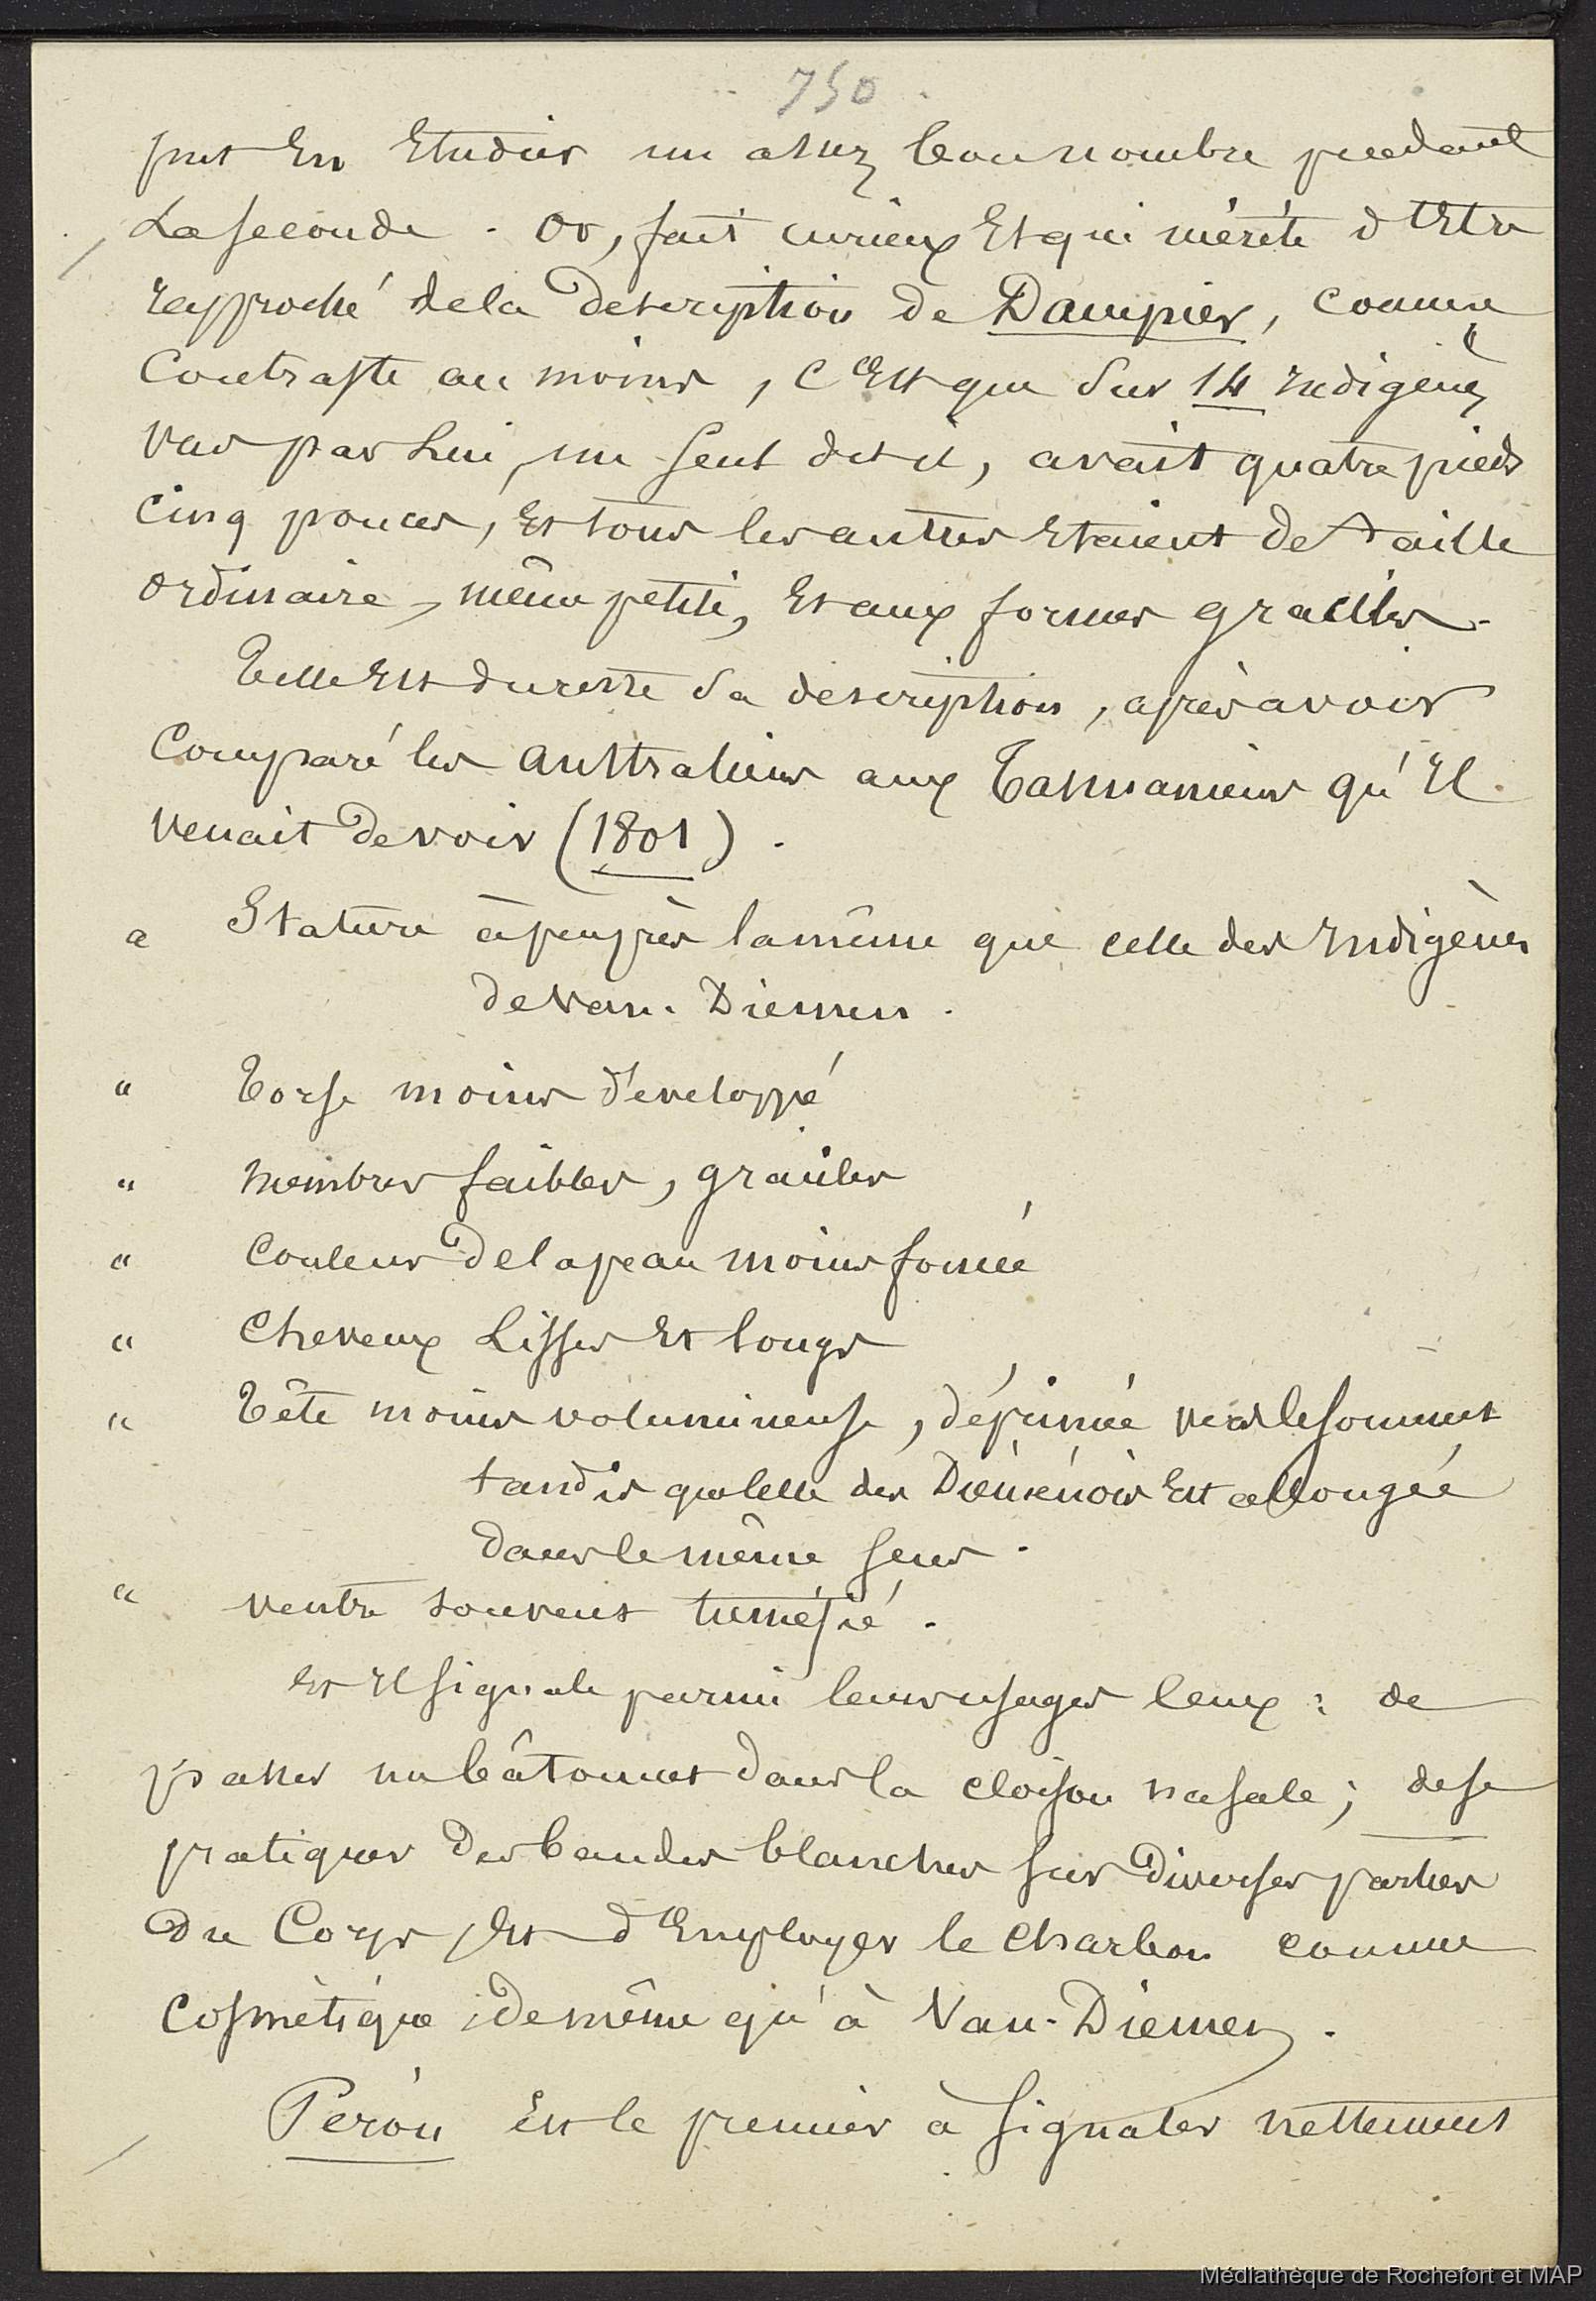 750
put En Etudier un assez bon nombre pendant
La seconde. Or, fait curieux Et qui mérite d'Etre
rapproché de la description de Dampier, comme
Contraste au moins, c'Est que Sur 14 Indigènes
vus par Lui, un seul dit il, avait quatre pieds
cinq pouces, Et tous les autres Etaient de taille
ordinaire, même petite, Et aux formes graciles.
Telle Est du reste Sa description, après avoir
Comparé les Australiens aux Tasmaniens qu'Il
venait de voir (1801).
a Stature à peu près la même que celle des Indigènes
de Van-Diemen.
" Torse moins développé
" membres faibles, graciles
" Couleur de la peau moins foncée
" Cheveux Lisses Et longs
" Tête moins volumineuse, déprimée vers le sommet
tandis que celle des Diéménois Est allongée
dans le même sens.
" ventre souvent tuméfié.
Et Il signale parmi leurs usages ceux : de
passer un bâtonnet dans la cloison nasale ; de se
pratiquer des bandes blanches sur diverses parties
du Corps, Et d'Employer le charbon comme
Cosmétique, de même qu'à Van-Diemen.
Péron Est le premier à signaler nettement
Médiathèque de Rochefort et MAP